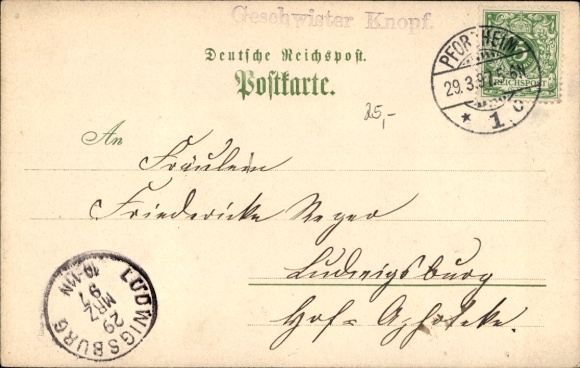 Geschwister Knopf.
Deutsche Reichspost.
Postkarte.
PFORZHEIM
29.3.97.
1 c
REICHSPOST
25,-
An
Fräulein
Friedericke Reger
Ludwigsburg
Hof-Apotheke.
LUDWIGSBURG
29
MRZ
97
10-11N